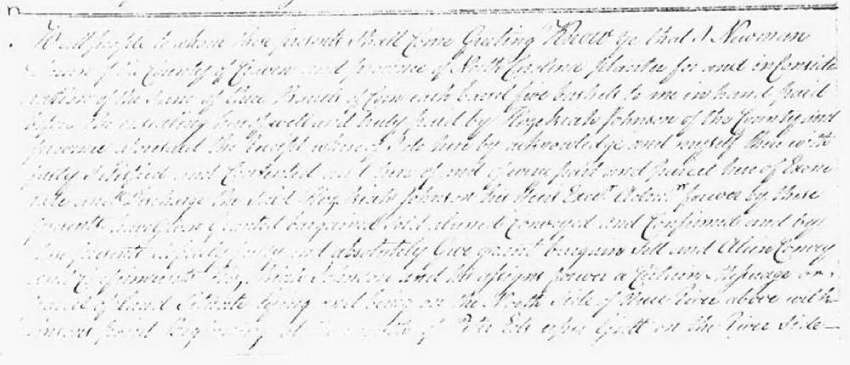 To all people to whom these presents Shall Come Greeting Know ye that I Newman
of the County of Craven and province of North Carolina planter for and in Conside
ration of the Sum of three Barrels of Corn each barrel five bushels to me in hand paid
before the ensealing hereof well and truly paid by Hezekiah Johnson of the County and
province aforesaid the Receipt whereof I do hereby acknowledge and myself there with
fully Satisfied and Contented and thereof and of every part and parcel thereof Exone
rate and Discharge the Said Hezekiah Johnson his Heirs Execrs Admrs forever by these
presents have given granted bargained Sold aliened conveyed and Confirmed and by
these presents do freely fully and absolutely Give grant bargain Sell and Alien Convey
and Confirm unto Johnson and his assigns forever a Certain Messuage or
parcel of Land Situate lying and being on the North Side of River above
beginning at the mouth of Gutt on the River Side